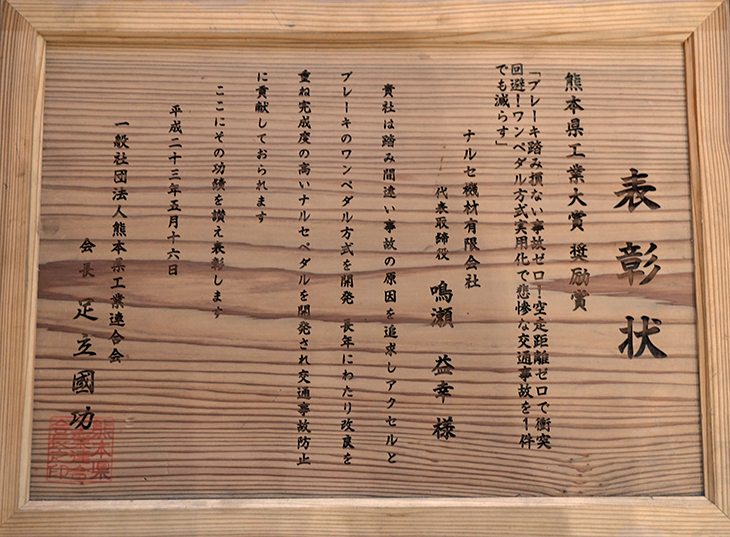 表彰状
熊本県工業大賞 奨励賞
「ブレーキ踏み損ない事故ゼロ!空走距離ゼロで衝突
回避!ワンペダル方式実用化で悲惨な交通事故を1件
でも減らす」
ナルセ機材有限会社
代表取締役 鳴瀬 益幸 様
貴社は踏み間違い事故の原因を追求しアクセルと
ブレーキのワンペダル方式を開発 長年にわたり改良を
重ね完成度の高いナルセペダルを開発され交通事故防止
に貢献しておられます
ここにその功績を讃え表彰します
平成二十三年五月十六日
一般社団法人熊本県工業連合会
会長 足立國功
熊本県
工業連合
会長之印